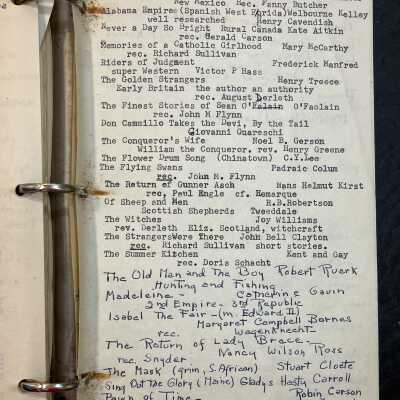 New Mexico Rec. Fanny Butcher
Alabama Empire (Spanish West Florida) Welbourne Kelley
well researched Henry Cavendish
Never a Day So Bright Rural Canada Kate Aitkin
rec. Gerald Carson
Memories of a Catholic Girlhood Mary McCarthy
rec. Richard Sullivan
Riders of Judgment Frederick Manfred
super Western Victor P Hass
The Golden Strangers Henry Treece
Early Britain the author an authority
rec. August Derleth
The Finest Stories of Sean O'Falain O'Faolain
rec. John M Flynn
Don Cammillo Takes the Devi, By the Tail
Giovanni Quareschi
The Conqueror's Wife Noel B. Gerson
William the Conqueror. rev. Henry Greene
The Flower Drum Song (Chinatown) C.Y.Lee
The Flying Swans Padraic Colum
rec. John M. Flynn
The Return of Gunner Asch Hans Helmut Kirst
rec, Paul Engle cf. Remarque
Of Sheep and Men R.B.Robertson
Scottish Shepherds Tweeddale
The Witches Joy Williams
rev. Derleth Eliz. Scotland, witchcraft
The StrangersWere There John Bell Clayton
rec. Richard Sullivan short stories.
The Summer Kitchen Kent and Gay
rec. Doris Schacht
The Old Man and The Boy Robert Ruark
Hunting and Fishing
Madeleine - Catherine Gavin
2nd Empire - 3rd Republic
Isabel The Fair - (m. Edward II)
Margaret Campbell Barnes
rec. Wagenknecht -
The Return of Lady Brace -
rec. Snyder Nancy Wilson Ross
The Mask (grim, S. African) Stuart Cloete
Sing Out the Glory (Maine) Gladys Hasty Carroll
of Time - Robin Carson